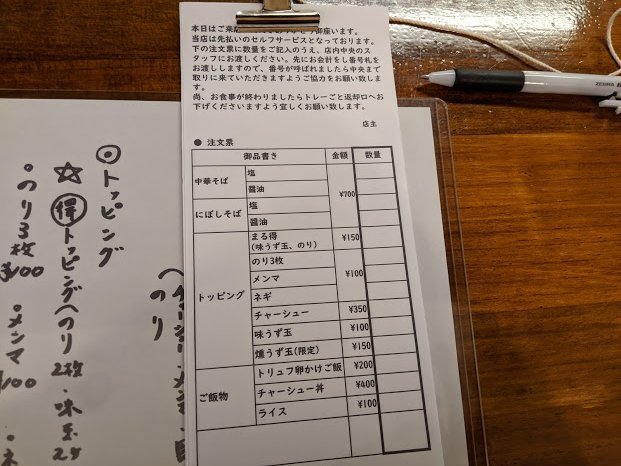 本日はご来店 御座います。
当店は先払いのセルフサービスとなっております。
下の注文票に数量をご記入のうえ、店内中央のス
タッフにお渡しください。先にお会計をし番号札を
お渡ししますので、番号が呼ばれましたら中央まで
取りに来ていただきますようご協力をお願い致しま
す。
尚、お食事が終わりましたらトレーごと返却口へお
下げくださいますよう宜しくお願い致します。
店主
● 注文票
御品書き 金額 数量
中華そば 塩 ¥700
醤油
にぼしそば 塩
醤油
トッピング まる得(味うず玉、のり) ¥150
のり3枚 ¥100
メンマ
ネギ
チャーシュー ¥350
味うず玉 ¥100
燻うず玉(限定) ¥150
ご飯物 トリュフ卵かけご飯 ¥200
チャーシュー丼 ¥400
ライス ¥100
◎トッピング
☆得トッピング(のり2枚・味玉2ケ
のり
。のり3枚 ¥100
。メンマ ¥100
ZEBRA